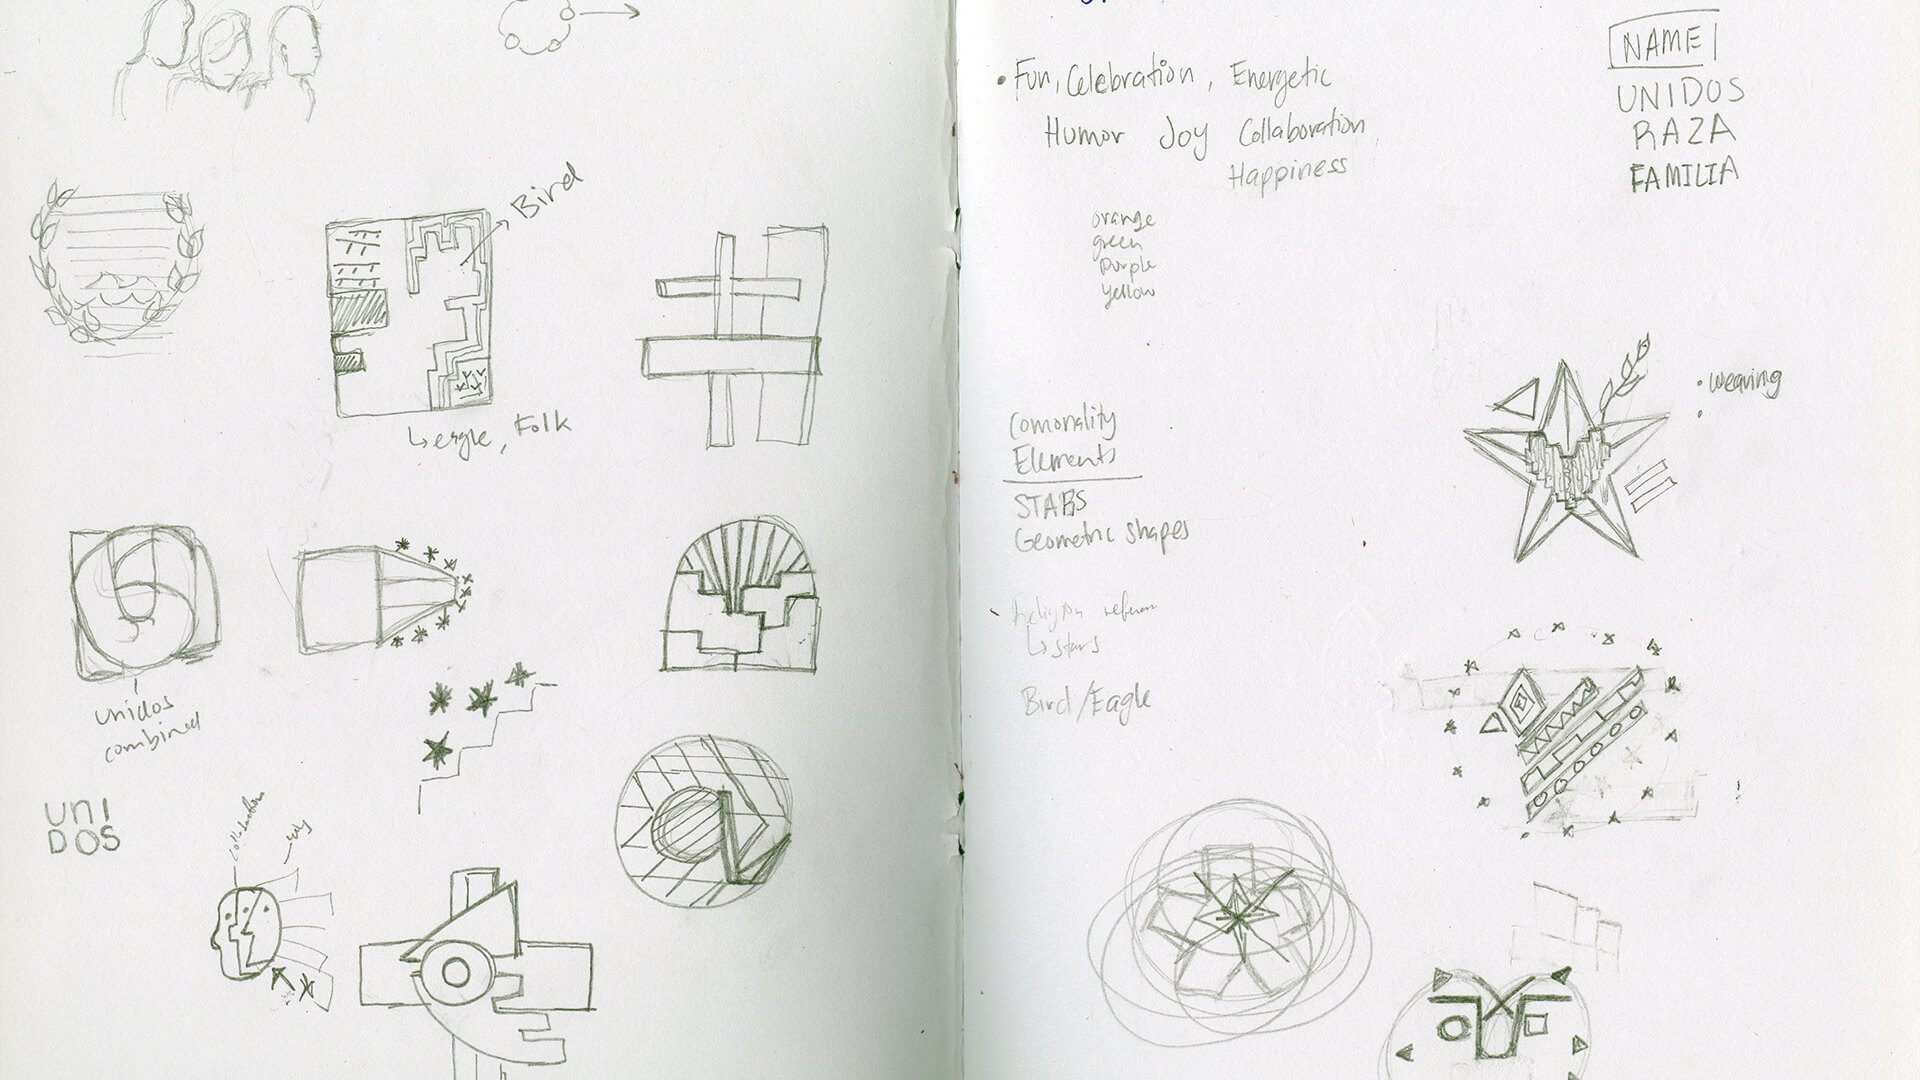 Bird
↳ eagle, Folk
unidos
combined
UNI
DOS
• Fun, Celebration, Energetic
Humor Joy Collaboration
Happiness
orange
green
purple
yellow
NAME
UNIDOS
RAZA
FAMILIA
• weaving
Comonality
Elements
STARS
Geometric shapes
↳ stars
Bird/Eagle